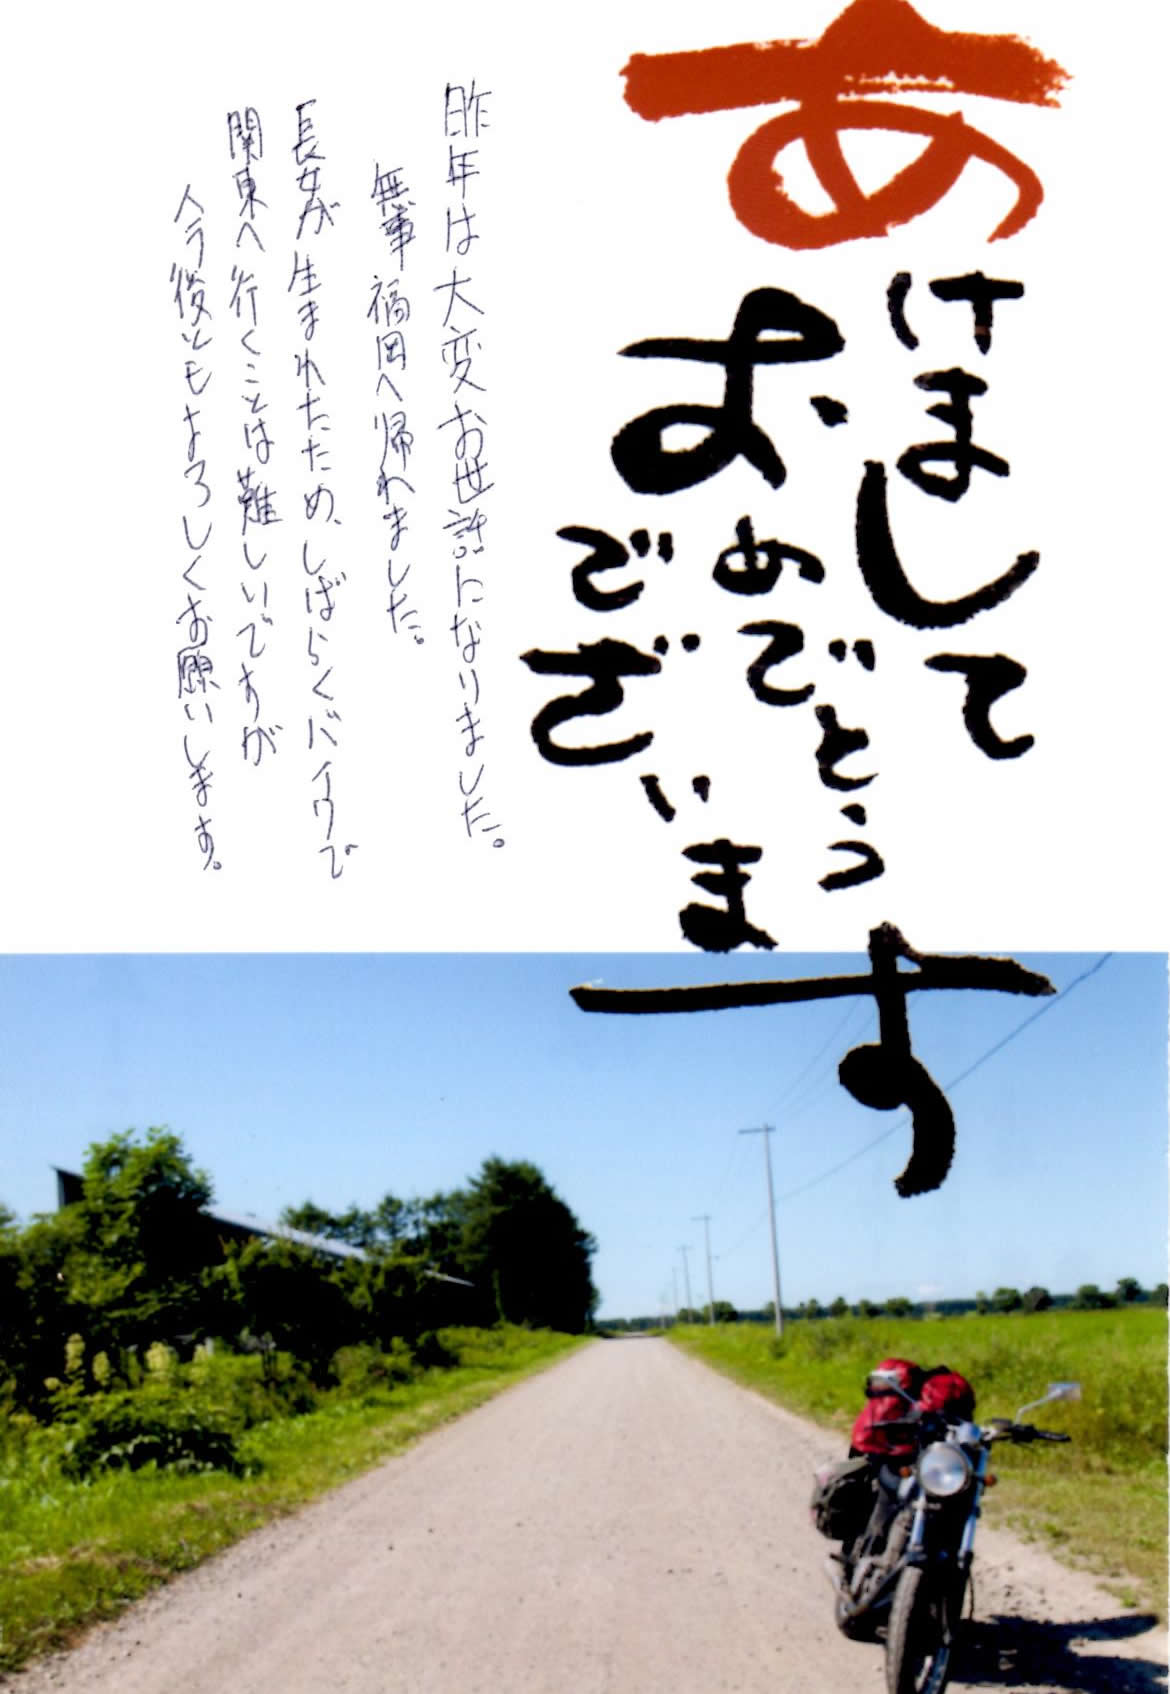 あけまして
おめでとう
ございます
昨年は大変お世話になりました。
無事福岡へ帰れました。
長女が生まれたため、しばらくバイクで
関東へ行くことは難しいですが
今後ともよろしくお願いします。